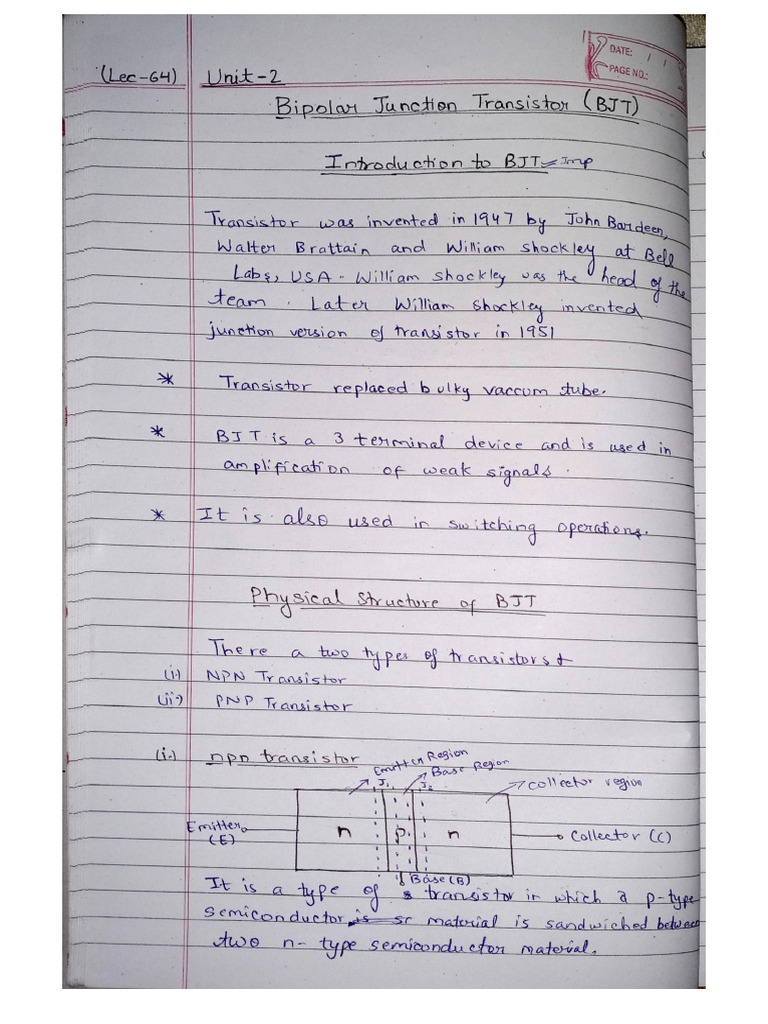 DATE: / /
PAGE NO.:
(Lec-64) Unit-2
Bipolar Junction Transistor (BJT)
Introduction to BJT Imp
Transistor was invented in 1947 by John Bardeen,
Walter Brattain and William shockley at Bell
Labs, USA - William Shockley was the head of the
team. Later William Shockley invented
junction version of transistor in 1951
* Transistor replaced bulky vaccum tube.
* BJT is a 3 terminal device and is used in
amplification of weak signals.
* It is also used in switching operations.
Physical Structure of BJT
There a two types of transistors
(i) NPN Transistor
(ii) PNP Transistor
(i.) npn transistor
Emitter Region
Base Region
Collector region
J1 J2
Emitter (E)
n p n
Collector (C)
Base (B)
It is a type of transistor in which a p-type
semiconductor material is sandwiched between
two n-type semiconductor material.